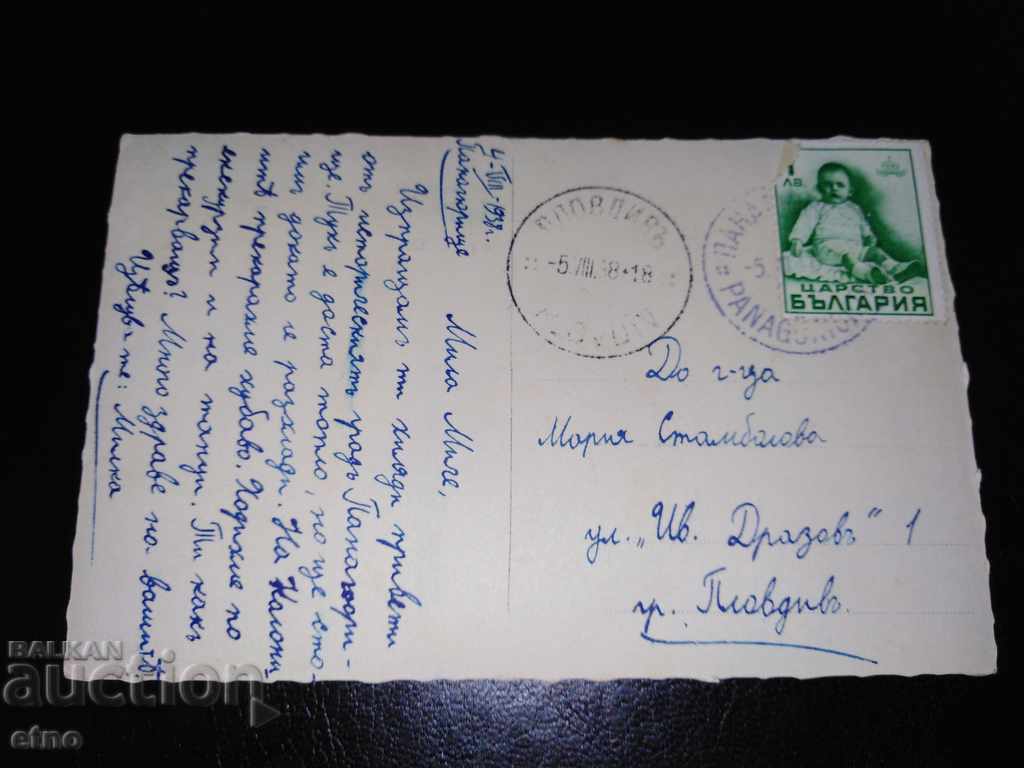 4-VIII-1938г.
Панагюрище
Мила Миче,
Изпращам ти хиляди привети
отъ историческиятъ градъ Панагюри-
ще. Тукъ е доста топло, но ще сто-
имъ докато се разхлади. На
прекарахме хубаво. Ходихме по
екскурзии и на танци. Ти какъ
прекарвашъ? Много здраве на вашитѣ
Цѣлува те: Милка
ПЛОВДИВЪ
-5.VIII.38-18
PLOVDIV
ПАНАГ
-5.
PANAGURICHTE
1
ЛВ.
ЦАРСТВО
БЪЛГАРИЯ
До г-ца
Мария Стамболова
ул. „Ив. Дразовъ" 1
гр. Пловдивъ.
BALKAN
auction
etno